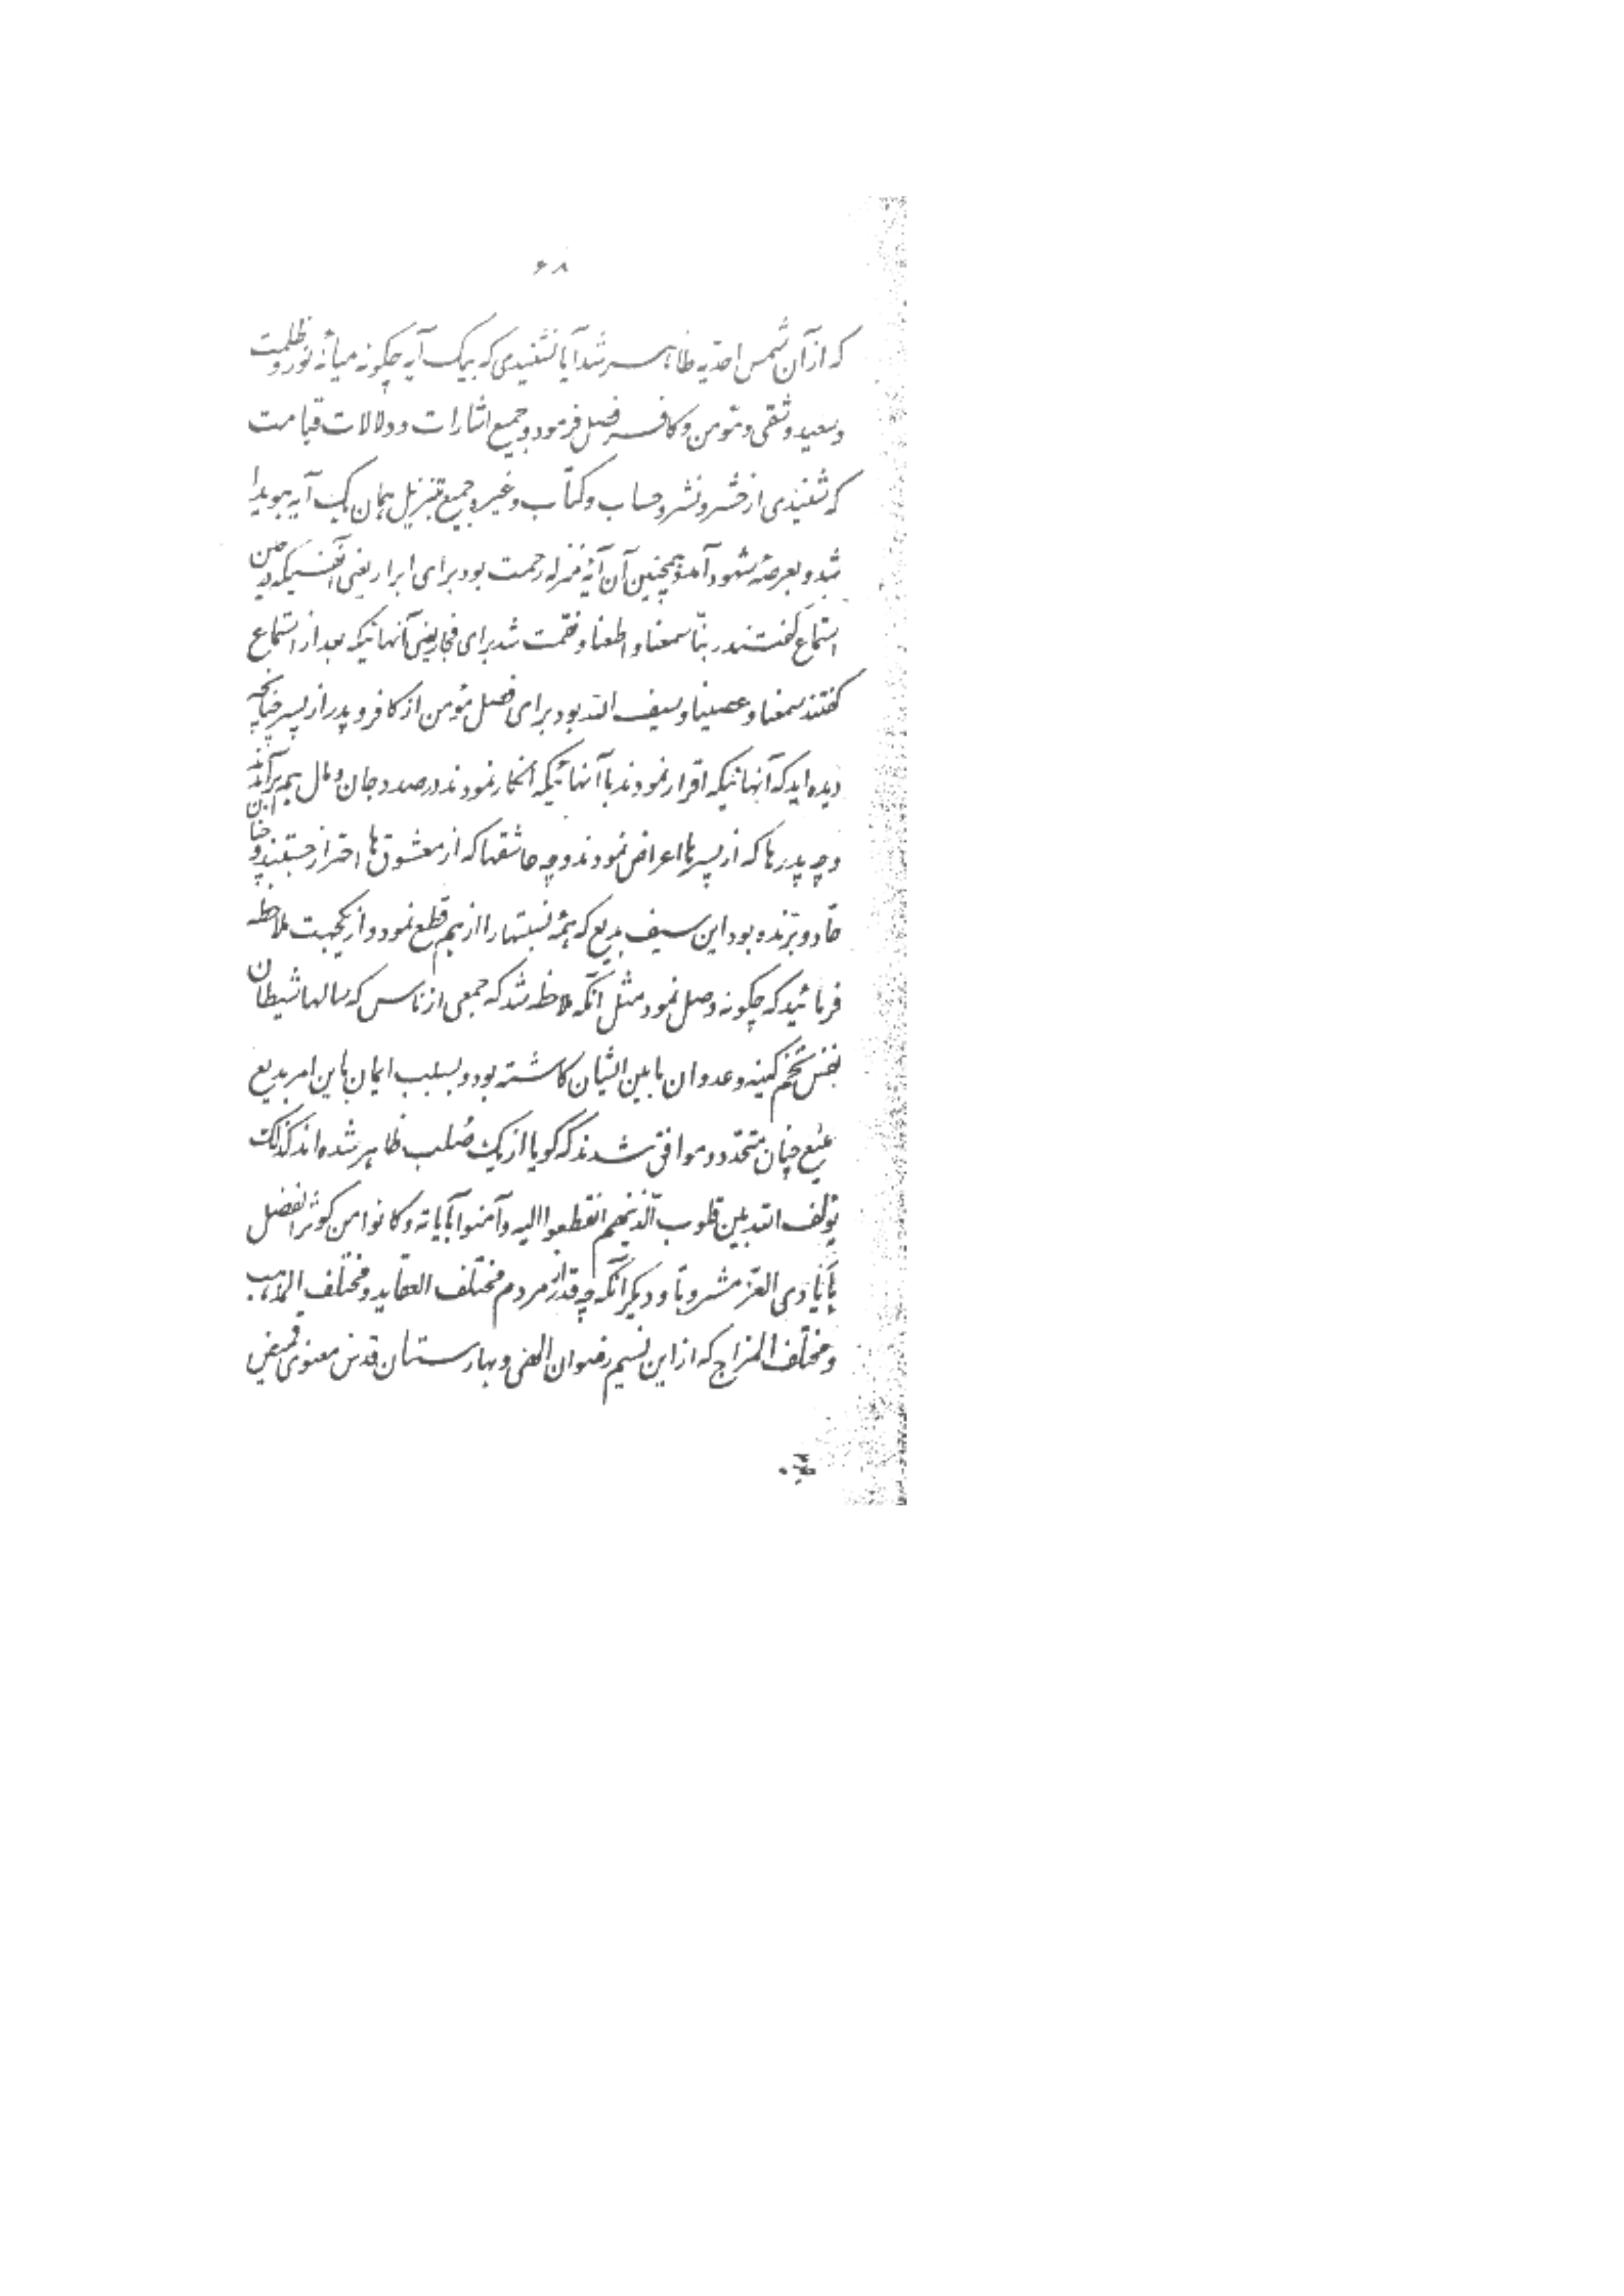 ۶۸
که از آن شمس احدیه ظاهر شد آیا نشنیدی که بیک آیه چگونه میانهٔ نور و ظلمت
و سعید و شقی و مؤمن و کافر فصل فرمود و جمیع اشارات و دلالات قیامت
که شنیدی از حشر و نشر و حساب و کتاب و غیره جمیع بتنزیل همان یک آیه هویدا
شد و بعرصهٔ شهود آمد و همچنین آن آیهٔ منزله رحمت بود برای ابرار یعنی انفسیکه در حین
استماع گفتند ربنا سمعنا و اطعنا و نقمت شد برای فجار یعنی آنهائیکه بعد از استماع
گفتند سمعنا و عصینا و سیف الله بود برای فصل مؤمن از کافر و پدر از پسر چنانچه
دیده اید که آنهائیکه اقرار نمودند با آنهائیکه انکار نمودند در صدد جان و مال هم برآمدند
و چه پدرها که از پسرها اعراض نمودند و چه عاشقها که از معشوق ها احتراز جستند و چنان
حاد و برنده بود این سیف بدیع که همهٔ نسبتها را از هم قطع نمود و از یکجهت ملاحظه
فرمائید که چگونه وصل نمود مثل آنکه ملاحظه شد که جمعی از ناس که سالها شیطان
نفس تخم کینه و عدوان مابین ایشان کاشته بود و بسبب ایمان باین امر بدیع
منیع چنان متحد و موافق شدند که گویا از یک صلب ظاهر شده اند کذلک
یؤلف الله بین قلوب الذینهم انقطعوا الیه و آمنوا بآیاته و کانوا من کوثر الفضل
بایادی العز مشروبا و دیگر آنکه چه قدر از مردم مختلف العقاید و مختلف المذهب
و مختلف المزاج که از این نسیم رضوان الهی و بهارستان قدس معنوی قمیص